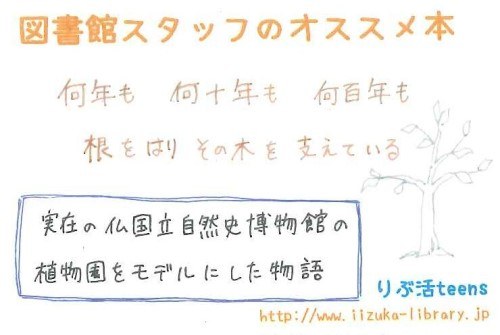 図書館スタッフのオススメ本
何年も 何十年も 何百年も
根をはり その木を 支えている
実在の仏国立自然史博物館の
植物園をモデルにした物語
りぶ活teens
http://www.iizuka-library.jp